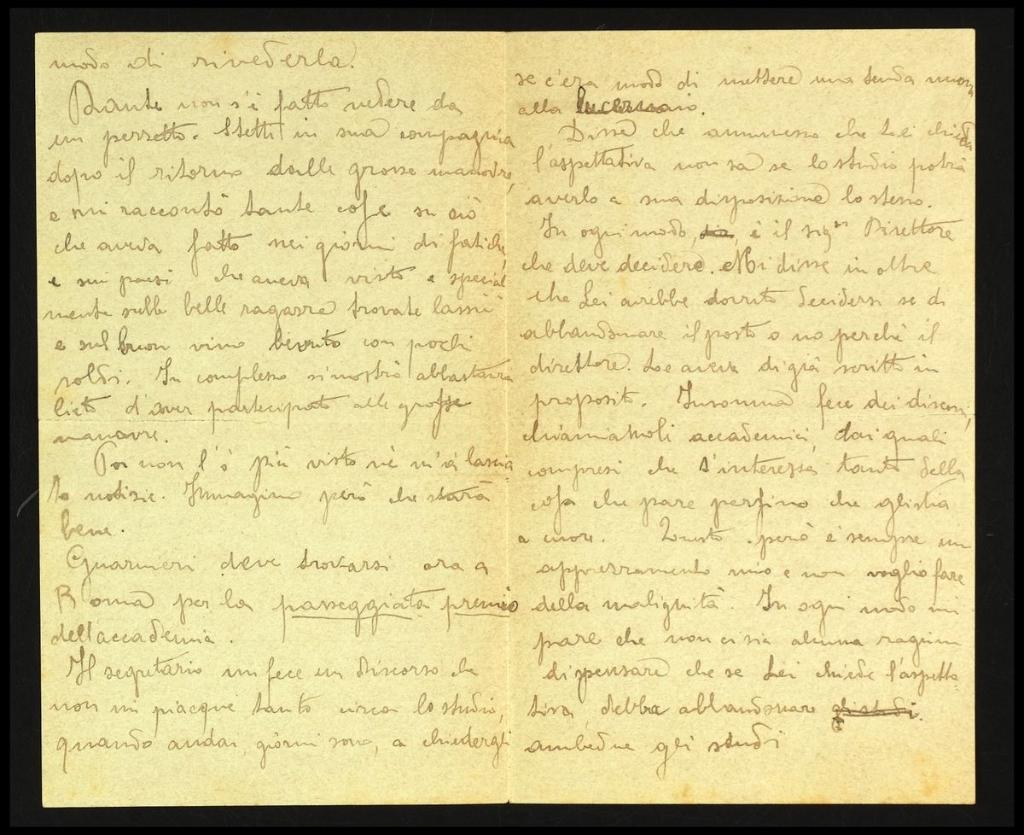 modo di rivederla.
Dante non s'è fatto vedere da
un pezzetto. Stetti in sua compagnia
dopo il ritorno dalle grosse manovre,
e mi raccontò tante cose su ciò
che aveva fatto nei giorni di fatiche,
e sui paesi che aveva visto e special
mente sulle belle ragazze trovate lassù
e sul buon vino bevuto con pochi
soldi. In complesso si mostrò abbastanza
lieto d'aver partecipato alle grosse
manovre.
Poi non l'ò più visto nè m'à lascia
to notizie. Immagino però che starà
bene.
Guarnieri deve trovarsi ora a
Roma per la passeggiata premio
dell'accademia.
Il segretario mi fece un discorso che
non mi piacque tanto circa lo studio,
quando andai, giorni sono, a chiedergli
se c'era modo di mettere una tenda nuova
alla lucernaio.
Disse che ammesso che Lei chieda
l'aspettativa non sa se lo studio potrà
averlo a sua disposizione lo stesso.
In ogni modo, sia, è il sigʳ Direttore
che deve decidere. Mi disse inoltre
che Lei avrebbe dovuto decidersi se di
abbandonare il posto o no perchè il
direttore Le aveva di già scritto in
proposito. Insomma fece dei discorsi,
chiamiamoli accademici, dai quali
compresi che s'interessa tanto della
cosa che pare perfino che gli stia
a cuore. Questo però è sempre un
apprezzamento mio e non voglio fare
della malignità. In ogni modo mi
pare che non ci sia alcuna ragione
di pensare che se Lei chiede l'aspetta
tiva, debba abbandonare gli studi.
ambedue gli studi